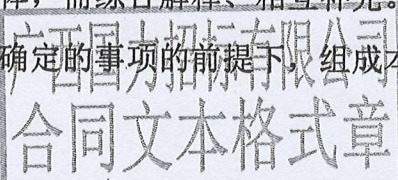 而综合解释、相互补充。
确定的事项的前提下，组成本
广西国力招标有限公司
合同文本格式章